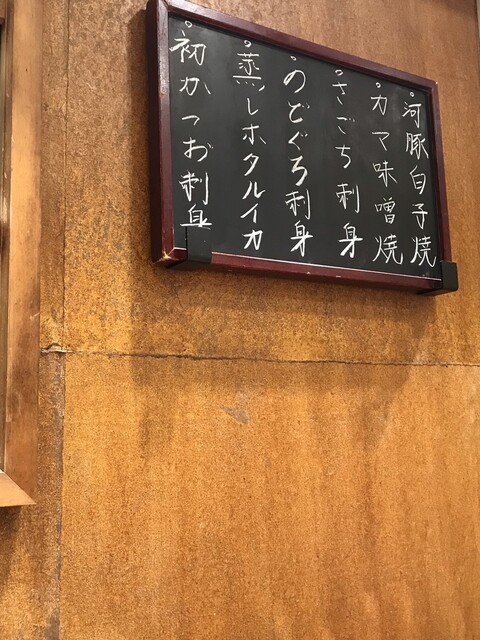 。河豚白子焼
。カマ味噌焼
。さごち刺身
。のどぐろ刺身
。蒸しホタルイカ
。初かつお刺身